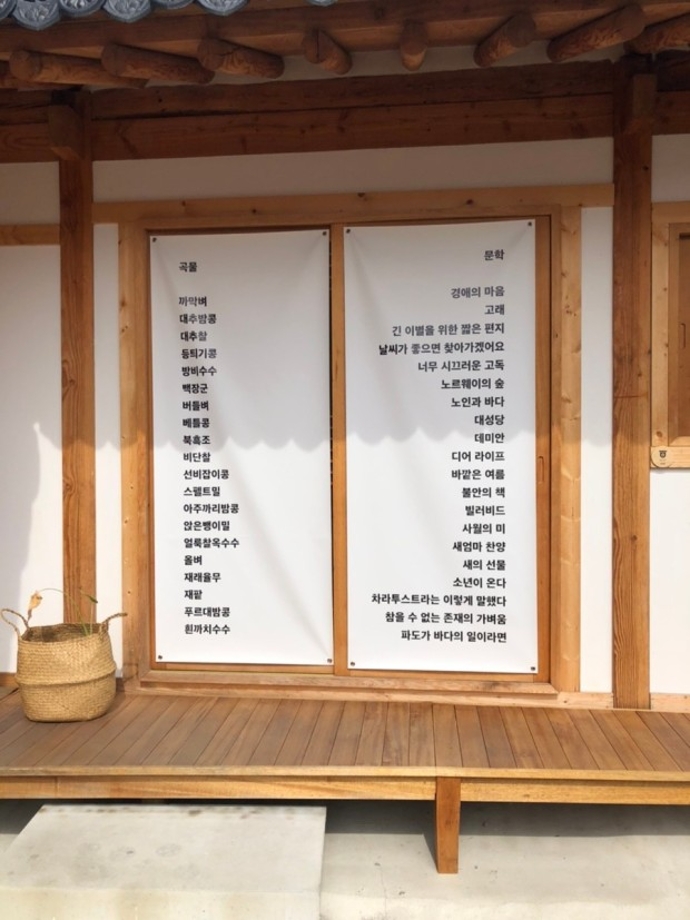 곡물
까막벼
대추밤콩
대추찰
등틔기콩
방비수수
백장군
버들벼
베틀콩
북흑조
비단찰
선비잡이콩
스펠트밀
아주까리밤콩
앉은뱅이밀
얼룩찰옥수수
올벼
재래율무
재팥
푸르대밤콩
흰까치수수
문학
경애의 마음
고래
긴 이별을 위한 짧은 편지
날씨가 좋으면 찾아가겠어요
너무 시끄러운 고독
노르웨이의 숲
노인과 바다
대성당
데미안
디어 라이프
바깥은 여름
불안의 책
빌러비드
사월의 미
새엄마 찬양
새의 선물
소년이 온다
차라투스트라는 이렇게 말했다
참을 수 없는 존재의 가벼움
파도가 바다의 일이라면